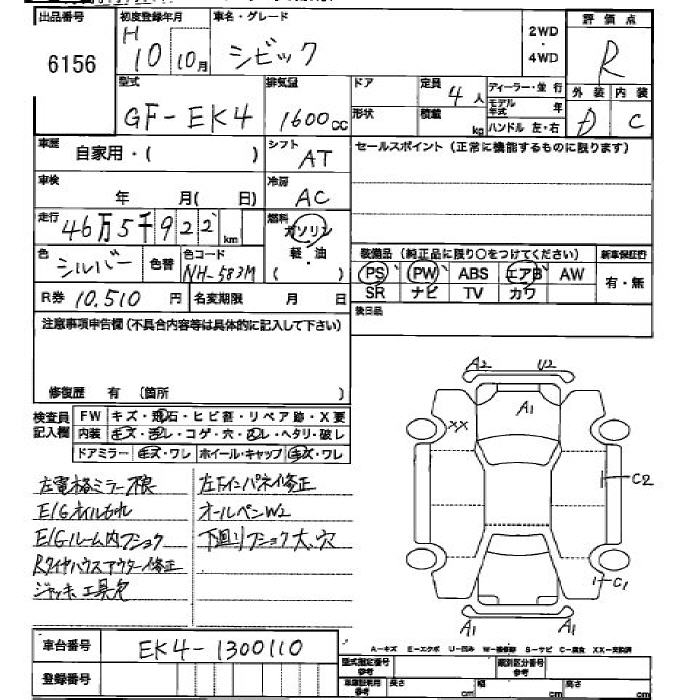 出品番号 初度登録年月 車名・グレード 評価点
6156 H 10 10月 シビック 2WD・4WD R
型式 排気量 ドア 定員 4人 ディーラー・並行 外装 内装
GF-EK4 1600cc 形状 積載 kg モデル年式 年 D C
ハンドル 左・右
車歴 自家用・( ) シフト AT セールスポイント (正常に機能するものに限ります)
車検 年 月( 日) 冷房 AC
走行 46万5千922km 燃料 ガソリン 軽・油 ( )
色 シルバー 色替 色コード NH-583M 装備品 (純正品に限り○をつけてください) 新車保証書
PS PW ABS エアB AW 有・無
R券 10,510円 名変期限 月 日 SR ナビ TV カワ
注意事項申告欄 (不具合内容等は具体的に記入して下さい) 後日品
修復歴 有 (箇所 )
検査員記入欄 FW キズ・飛石・ヒビ割・リペア跡・X要
内装 キズ・汚レ・コゲ・穴・切レ・ヘタリ・破レ
ドアミラー キズ・ワレ ホイール・キャップ キズ・ワレ
左電格ミラー不良 左下インパネイ修正
E/Gオイルもれ オールペンW2
E/Gルーム内フショク 下廻りフショク大、穴
Rタイヤハウスアウター修正
ジャッキ、工具欠
A2 U2
A1
XX
C2
C1
A1 A1
A-キズ E-エクボ U-凹み W-補修跡 S-サビ C-腐食 XX-交換済
車台番号 EK4-1300110
登録番号
型式指定番号 参考 類別区分番号 参考
車庫証明用 参考 長さ cm 幅 cm 高さ cm